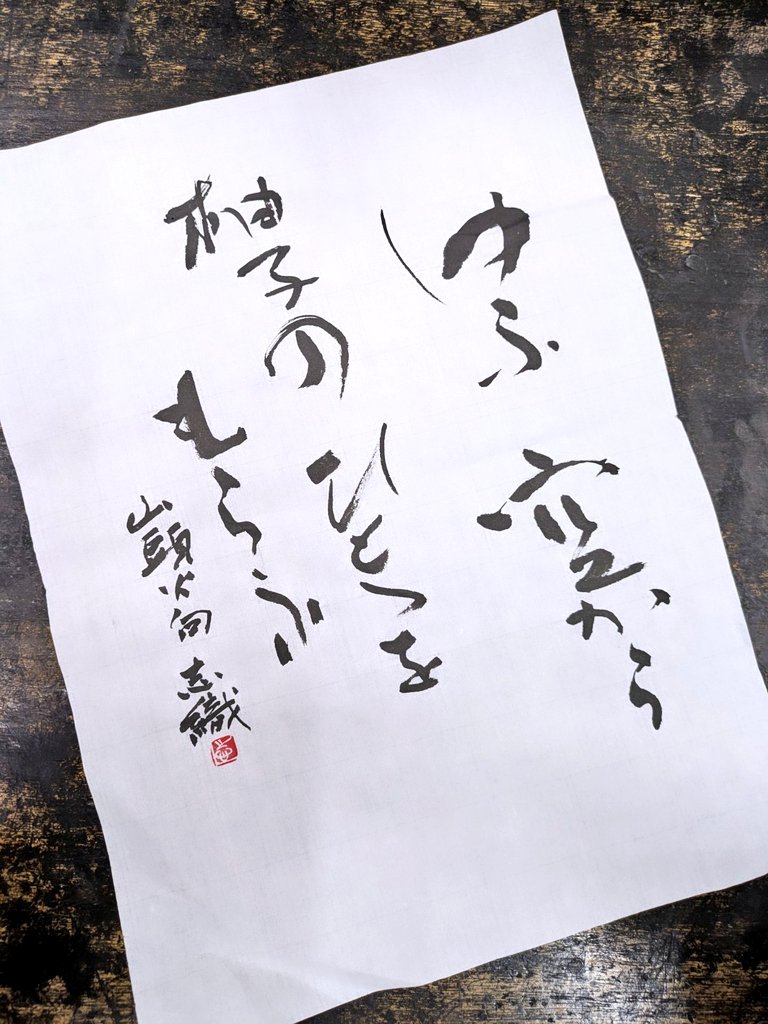 ゆふ空から
柚子のひとつを
もらふ
山頭火句 志織